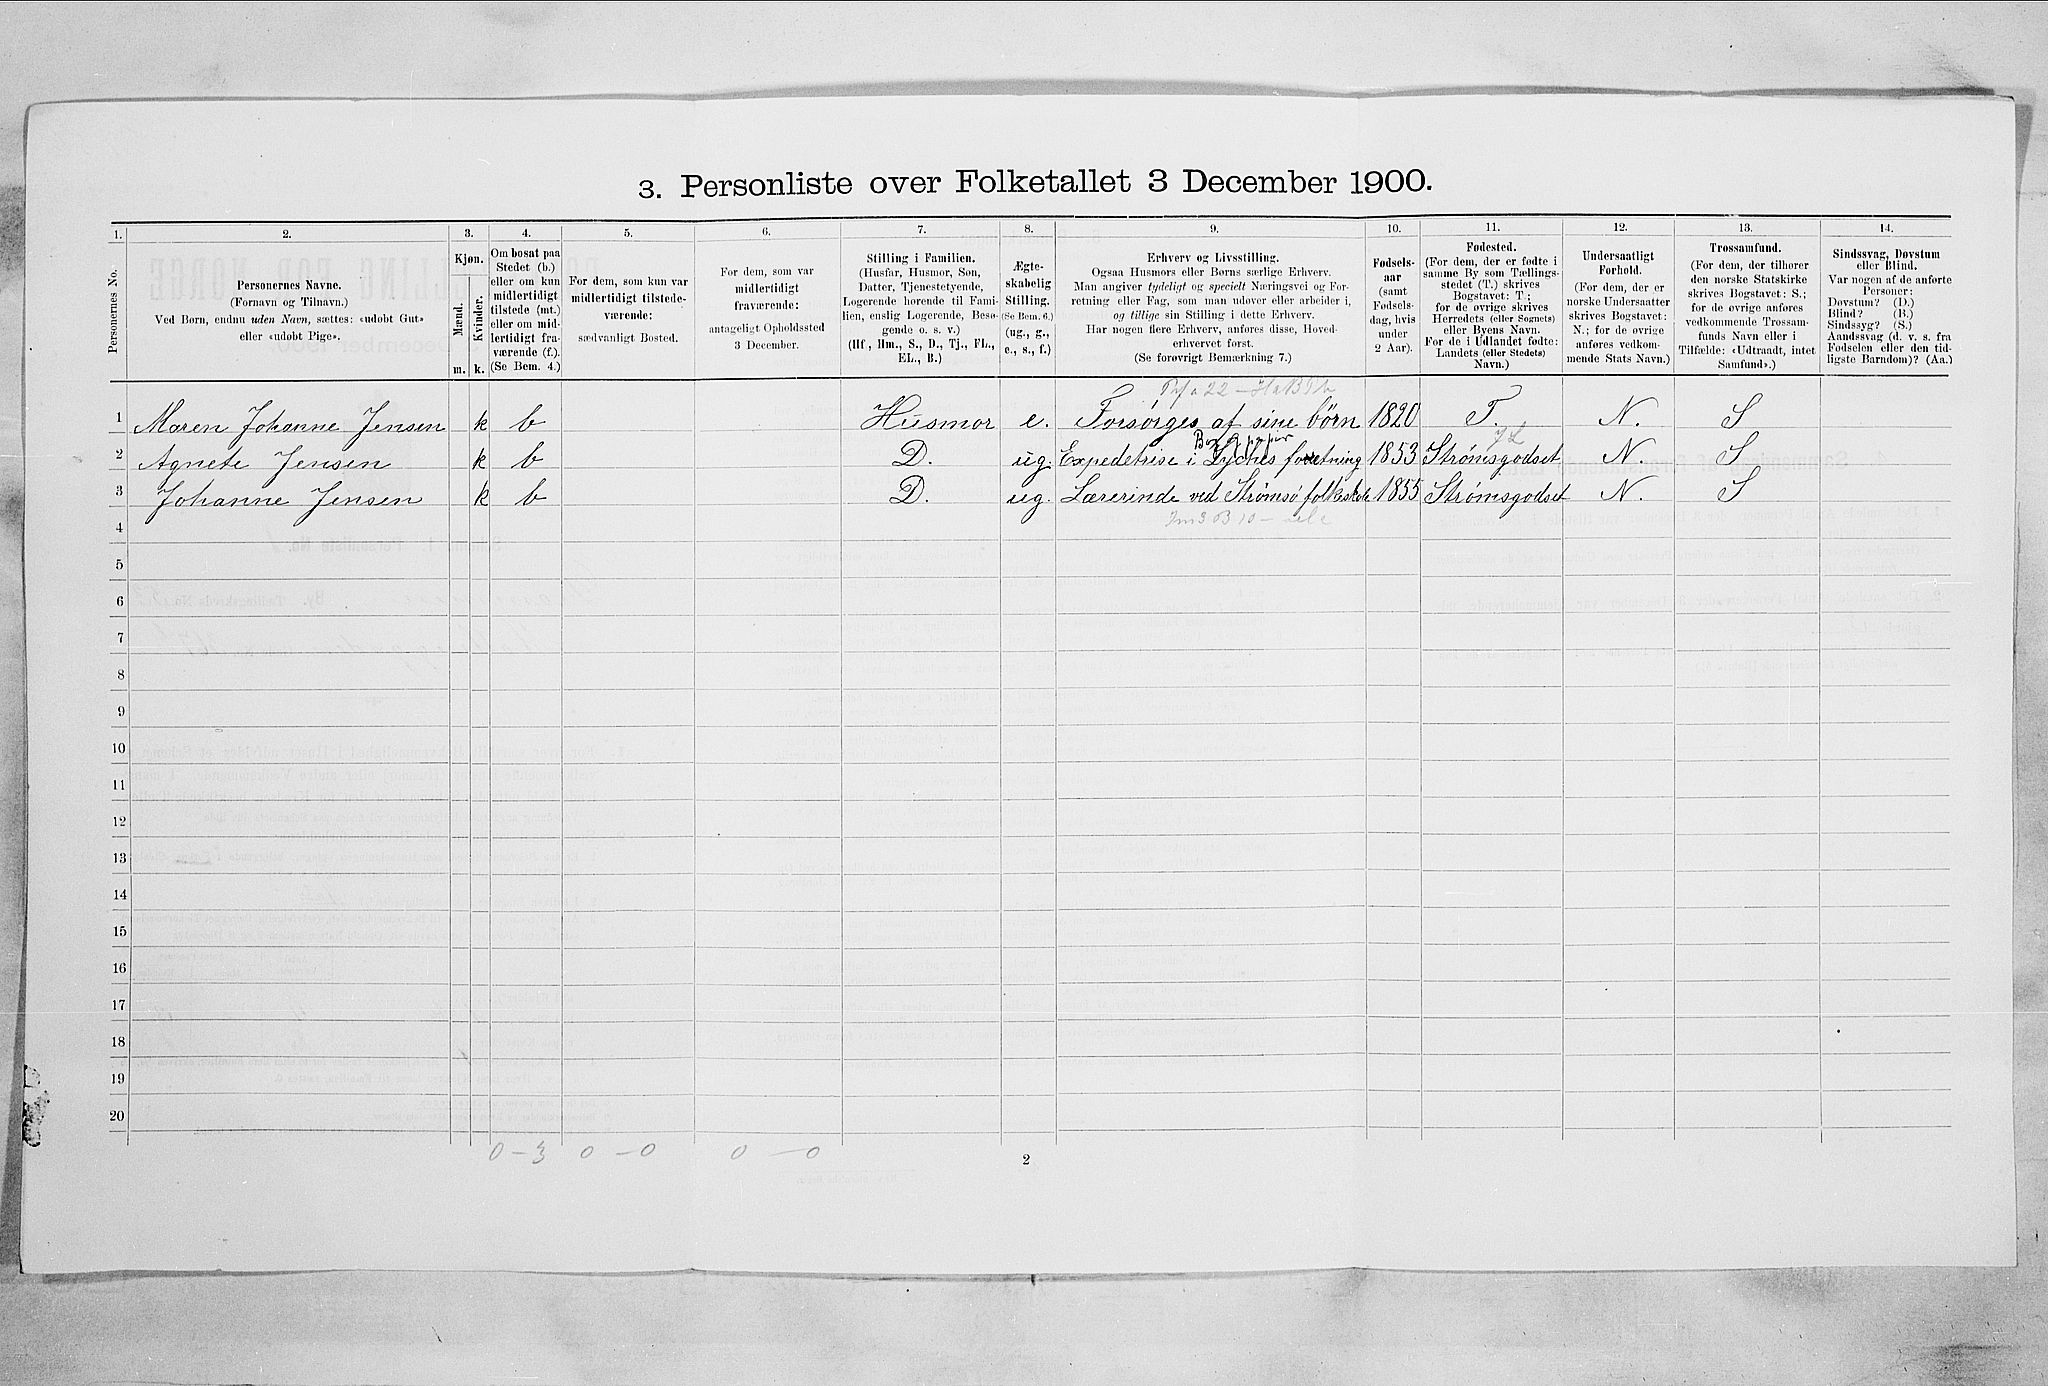 3. Personliste over Folketallet 3 December 1900.
1. 2. 3. 4. 5. 6. 7. 8. 9. 10. 11. 12. 13. 14.
Personernes No.
Personernes Navne.
(Fornavn og Tilnavn.)
Ved Børn, endnu uden Navn, sættes: «udøbt Gut»
eller «udøbt Pige».
Kjøn.
Mænd.
Kvinder.
m. k.
Om bosat paa
Stedet (b.)
eller om kun
midlertidigt
tilstede (mt.)
eller om mid-
lertidigt fra-
værende (f.).
(Se Bem. 4.)
For dem, som kun var
midlertidigt tilstede-
værende:
sædvanligt Bosted.
For dem, som var
midlertidigt
fraværende:
antageligt Opholdssted
3 December.
Stilling i Familien.
(Husfar, Husmor, Søn,
Datter, Tjenestetyende,
Logerende hørende til Fami-
lien, enslig Logerende, Besø-
gende o. s. v.)
(Hf, Hm., S., D., Tj., FL.,
EL., B.)
Ægte-
skabelig
Stilling.
(Se Bem. 6.)
(ug., g.,
e., s., f.)
Erhverv og Livsstilling.
Ogsaa Husmors eller Børns særlige Erhverv.
Man angiver tydeligt og specielt Næringsvei og For-
retning eller Fag, som man udøver eller arbeider i,
og tillige sin Stilling i dette Erhverv.
Har nogen flere Erhverv, anføres disse, Hoved-
erhvervet først.
(Se forøvrigt Bemærkning 7.)
Fødsels-
aar
(samt
Fødsels-
dag, hvis
under
2 Aar).
Fødested.
(For dem, der er fødte i
samme By som Tællings-
stedet (T.) skrives
Bogstavet: T.;
for de øvrige skrives
Herredets (eller Sognets)
eller Byens Navn.
For de i Udlandet fødte:
Landets (eller Stedets)
Navn.)
Undersaatligt
Forhold.
(For dem, der er
norske Undersaatter
skrives Bogstavet:
N.; for de øvrige
anføres vedkom-
mende Stats Navn.)
Trossamfund.
(For dem, der tilhører
den norske Statskirke
skrives Bogstavet: S.;
for de øvrige anføres
vedkommende Trossam-
funds Navn eller i
Tilfælde: «Udtraadt, intet
Samfund».)
Sindssvag, Døvstum
eller Blind.
Var nogen af de anførte
Personer:
Døvstum? (D.)
Blind? (B.)
Sindssyg? (S.)
Aandssvag (d. v. s. fra
Fødselen eller den tid-
ligste Barndom)? (Aa.)
1 Maren Johanne Jensen k b Husmor e. Forsørges af sine børn 1820 T. N. S
2 Agnete Jensen k b D. ug. Expedetrise i Lyches foretning 1853 Strømsgodset N. S
3 Johanne Jensen k b D. ug. Lærerinde ved Strømsø folkskole 1855 Strømsgodset N. S
4
5
6
7
8
9
10
11
12
13
14
15
16
17
18
19
20
0 – 3 0 – 0 0 – 0
2